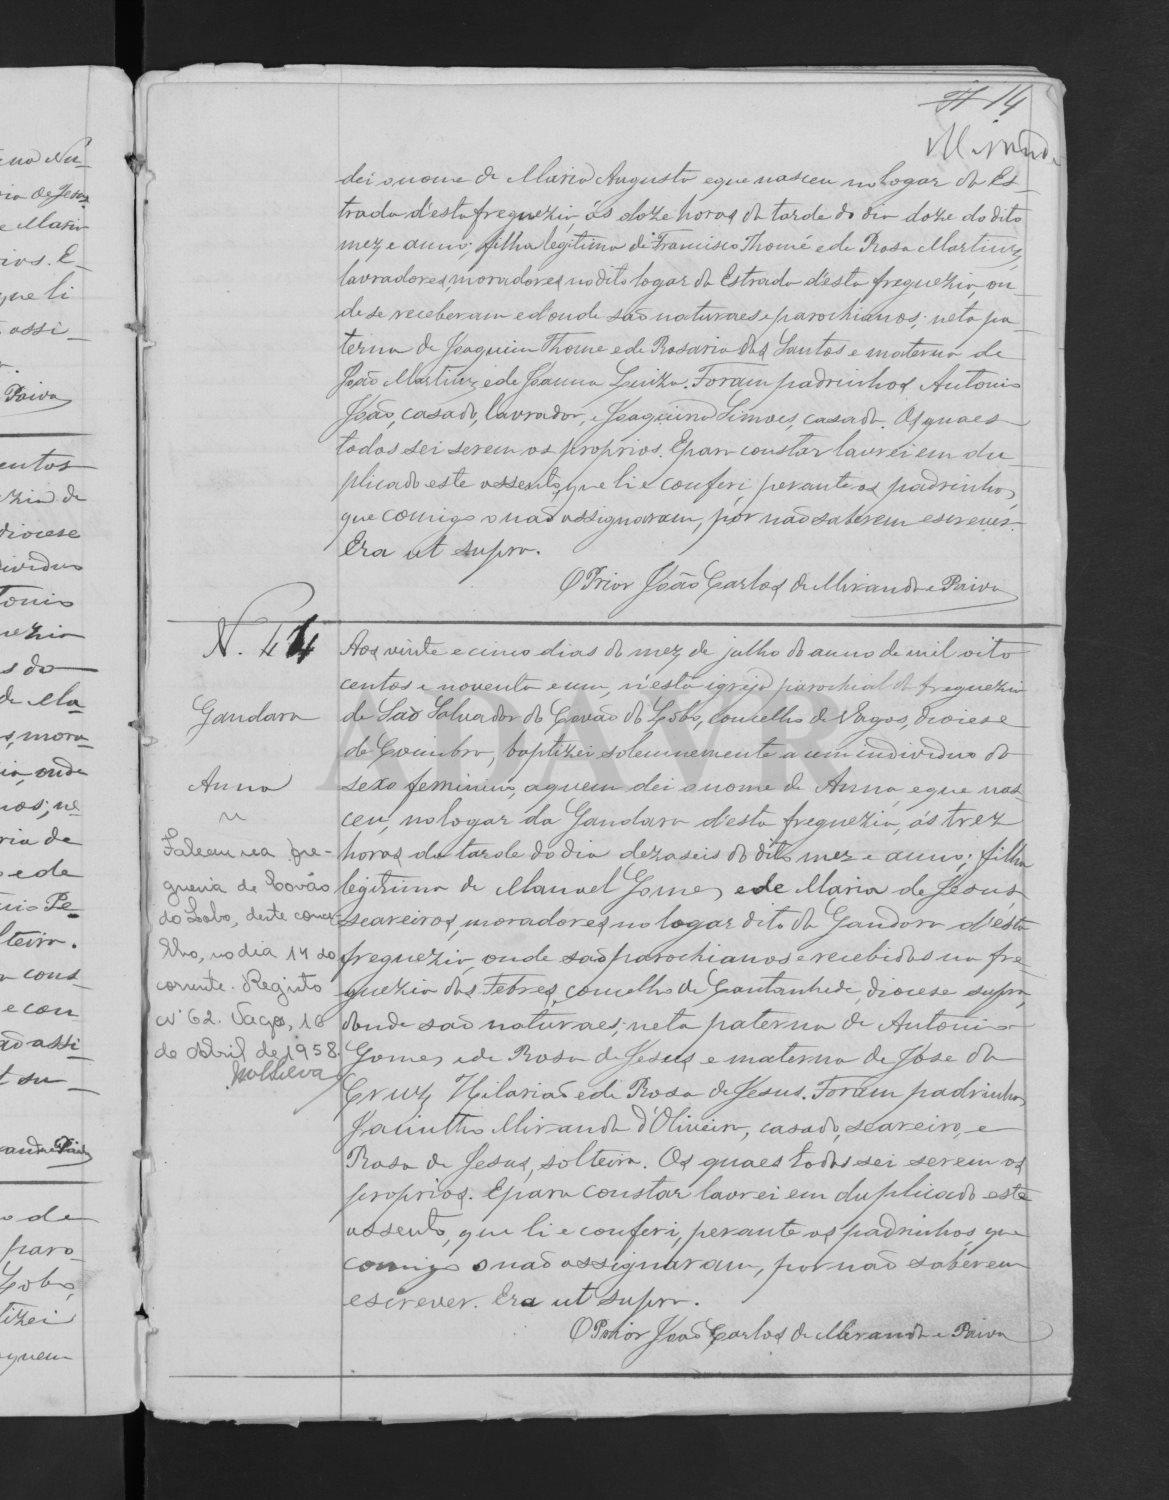 14
Miranda
dei o nome de Maria Augusta e que nasceu no logar da Es-
trada d'esta freguezia, ás doze horas da tarde do dia doze do dito
mez e anno; filha legitima de Francisco Thomé e de Rosa Martins,
lavradores, moradores no dito logar da Estrada d'esta freguezia, on-
de se receberam e d'onde são naturaes e parochianos; neta pa-
terna de Joaquim Thome e de Rosaria dos Santos e materna de
João Martins e de Joanna Luiza. Foram padrinhos Antonio
João, casado, lavrador, e Joaquina Simoes, casada. Os quaes
todos sei serem os proprios. E para constar lavrei em du-
plicado este assento, que li e conferi perante os padrinhos,
que comigo o não assignaram, por não saberem escrever.
Era ut supra.
O Prior João Carlos de Miranda e Paiva
N. 44
Gandara
Anna
Faleceu na fre-
guesia de Covão
do Lobo, deste conce-
lho, no dia 14 do
corrente. Registo
nº 62. Vagos, 16
de Abril de 1958.
Aos vinte e cinco dias do mez de julho do anno de mil oito
centos e noventa e um, n'esta igreja parochial da freguezia
de São Salvador do Covão do Lobo, concelho de Vagos, diocese
de Coimbra, baptizei solemnemente a um individuo do
sexo feminino, a quem dei o nome de Anna e que nas-
ceu, no logar da Gandara d'esta freguezia, ás trez
horas da tarde do dia dezaseis do dito mez e anno; filha
legitima de Manoel Gomes e de Maria de Jesus
seareiros, moradores no logar dito da Gandara d'esta
freguezia, onde são parochianos e recebidos na fre-
guezia das Febres, concelho de Cantanhede, diocese supra,
donde são naturaes; neta paterna de Antonio
Gomes e de Rosa de Jesus e materna de Jose da
Cruz Hilarião e de Rosa de Jesus. Foram padrinhos
Jacintho Miranda d'Oliveira, casado, seareiro, e
Rosa de Jesus, solteira. Os quaes todos sei serem os
proprios. E para constar lavrei em duplicado este
assento, que li e conferi, perante os padrinhos, que
comigo o não assignaram, por não saberem
escrever. Era ut supra.
O Prior João Carlos de Miranda e Paiva